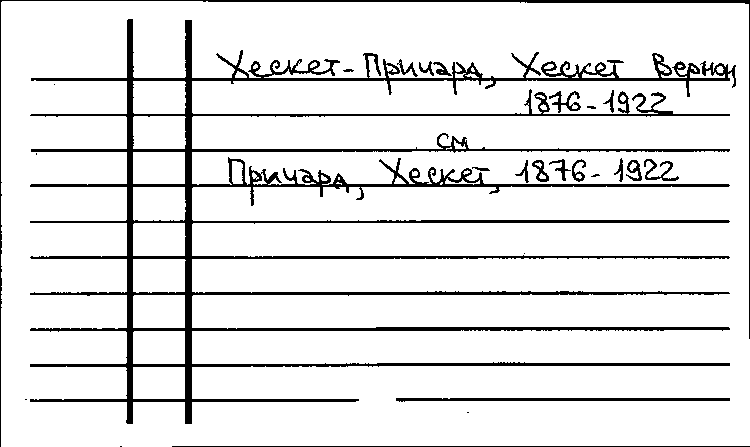 Хескет-Причард, Хескет Вернон,
1876-1922
см.
Причард, Хескет, 1876-1922